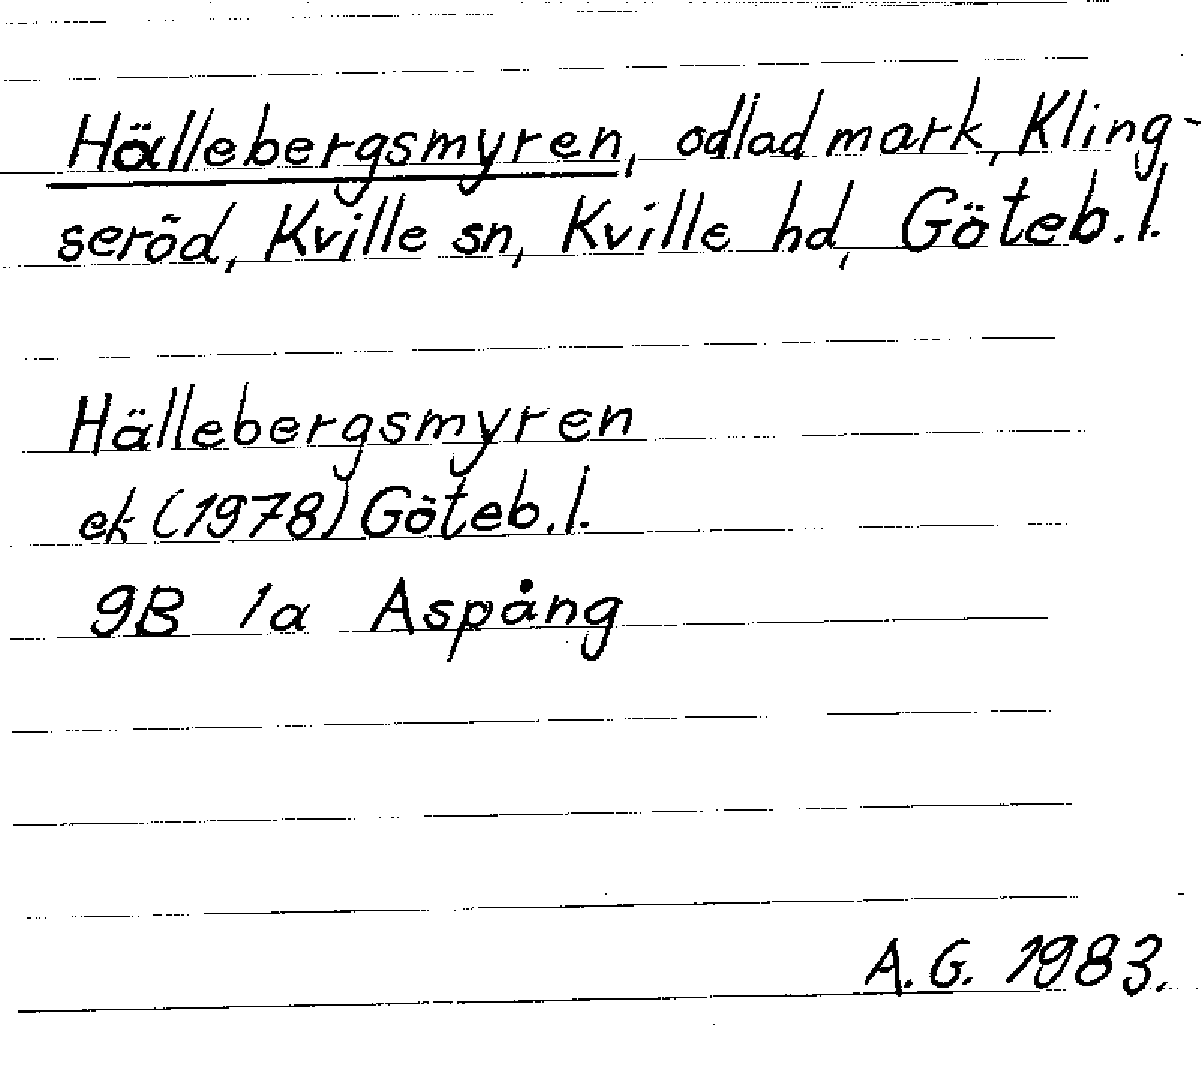 Hällebergsmyren, odlad mark, Kling-
seröd, Kville sn, Kville hd, Göteb.l.
Hällebergsmyren
ek (1978) Göteb.l.
9B 1a Aspång
A.G. 1983.